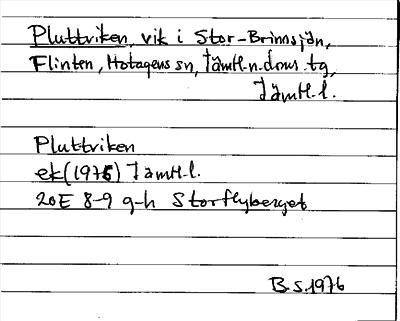 Pluttviken, vik i Stor-Brinnsjön,
Flinten, Hotagens sn, Jämtl.n.doms.tg,
Jämtl.l.
Pluttviken
ek(1975) Jämtl.l.
20E 8-9 g-h Storflyberget
B.S.1976